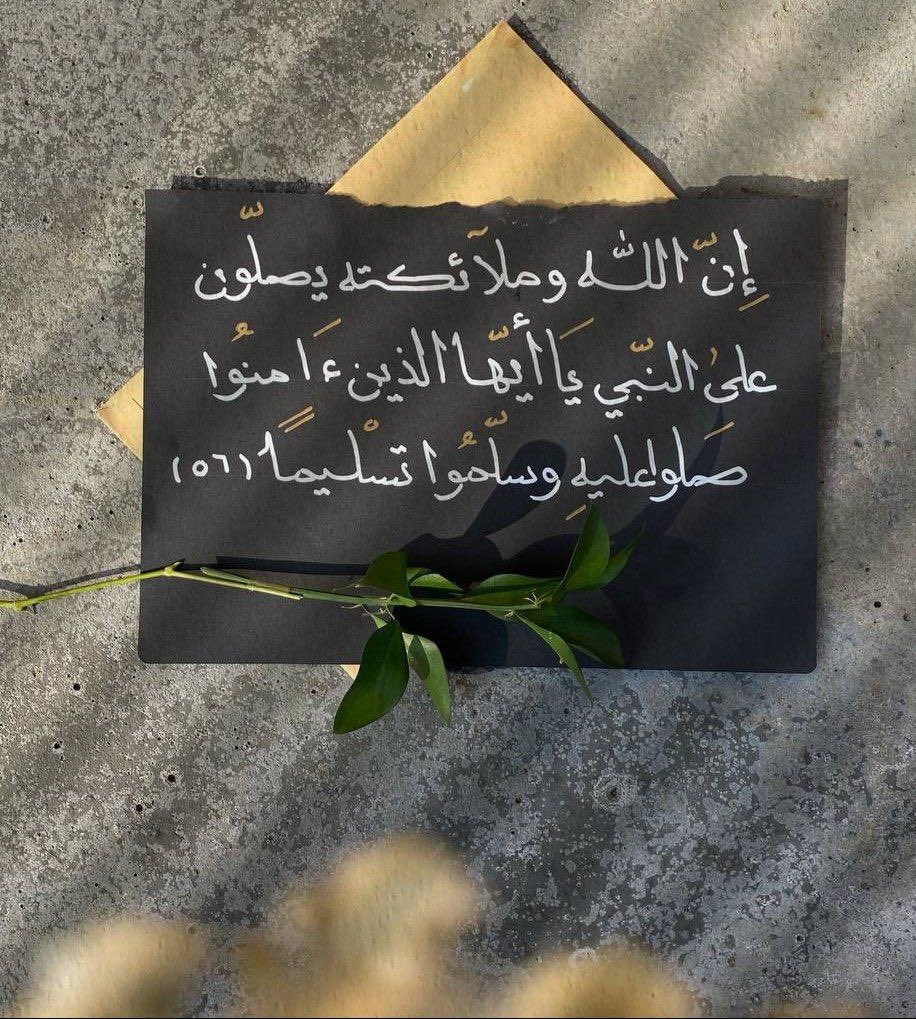 إِنّ اللّه وملآئكته يصلّون
علىٰ النّبي يَا أيّها الذين ءَامنُوا
صَلوا عليهِ وسلّمُوا تسْليمًا (٥٦)